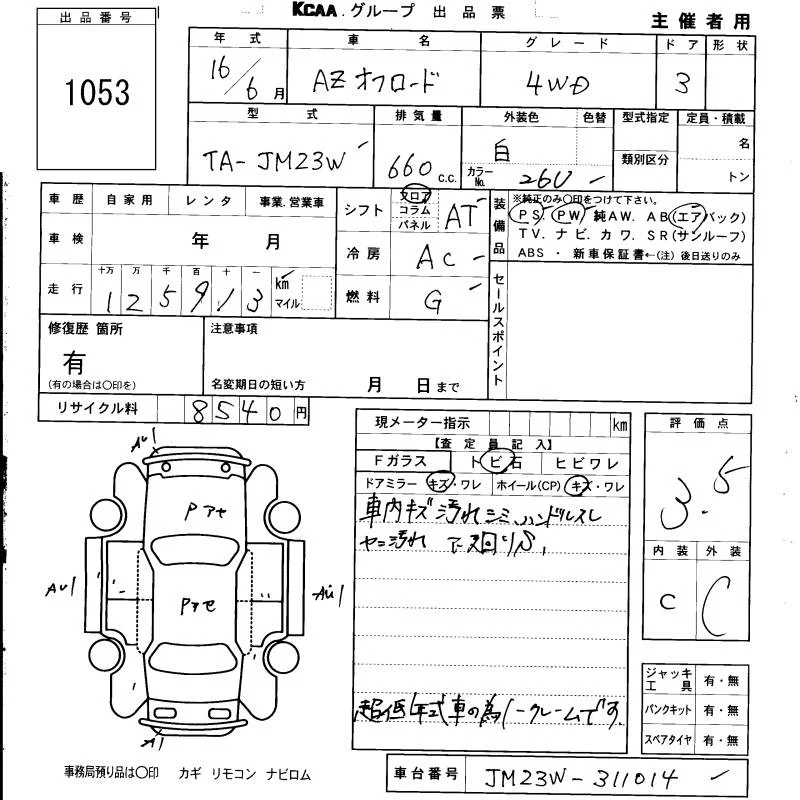 KCAA.グループ 出品票
主催者用
出品番号
1053
年式 車名 グレード ドア 形状
16/6月 AZオフロード 4WD 3
型式 排気量 外装色 色替 型式指定 定員・積載
TA-JM23W 660 c.c. 白 カラーNo. 26U 類別区分 名
トン
車歴 自家用 レンタ 事業.営業車
シフト フロア コラム パネル AT
装備品 ※純正のみ〇印をつけて下さい。
PS. PW 純AW. AB(エアバック)
TV. ナビ. カワ. SR(サンルーフ)
ABS ・ 新車保証書←(注) 後日送りのみ
車検 年 月
冷房 AC
走行 十万 万 千 百 十 一
125913 km マイル
燃料 G
セールスポイント
修復歴 箇所
有
(有の場合は〇印を)
注意事項
名変期日の短い方 月 日まで
リサイクル料 8540円
現メーター指示 km
【査定員記入】
Fガラス トビ石 ヒビワレ
ドアミラー キズ・ワレ ホイール(CP) キズ・ワレ
車内キズ汚れシミ ハンドルスレ
ヤニ汚れ
超低年式車の為ノークレームです.
評価点
3.5
内装 外装
C C
AU1
Pアセ
AU1
Pアセ
AU1
A1
ジャッキ工具 有・無
パンクキット 有・無
スペアタイヤ 有・無
事務局預り品は〇印 カギ リモコン ナビロム
車台番号 JM23W-311014